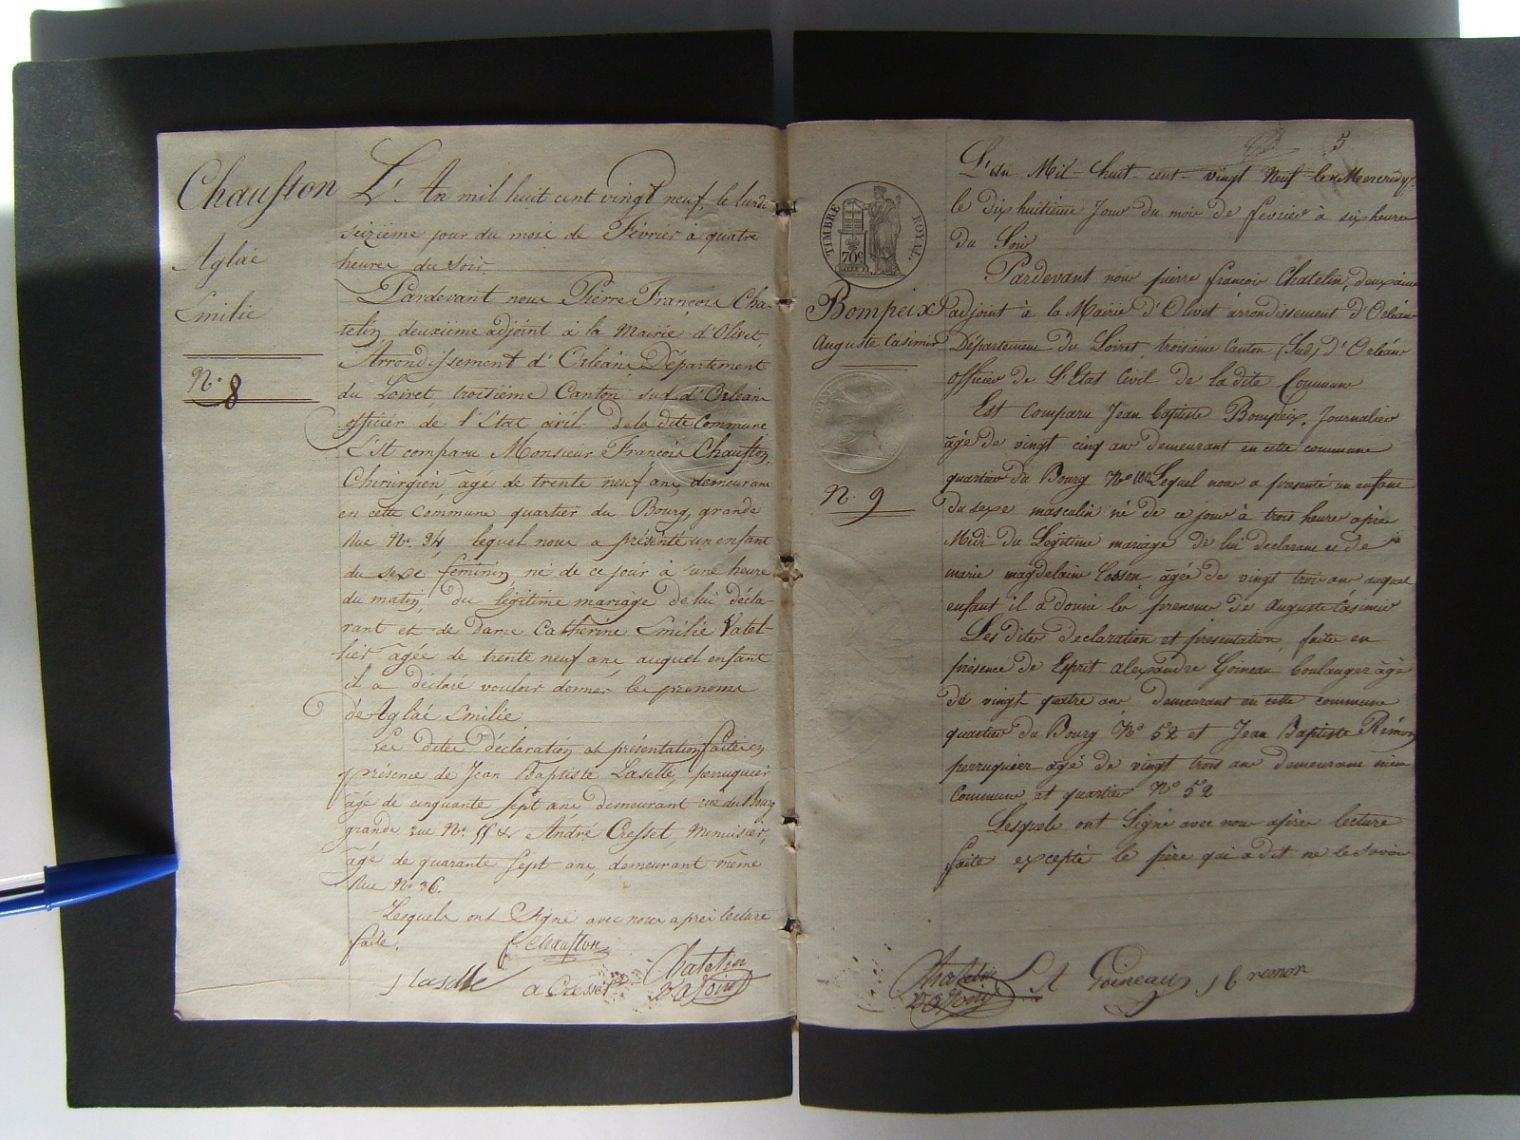 Chauston
Aglaé
Emilie
N.º 8
L'An mil huit cent vingt neuf, le lundi
seizième jour du mois de Février à quatre
heures du soir.
Pardevant nous Pierre François Cha-
telin deuxième adjoint à la Mairie d'Olivet,
Arrondissement d'Orléans Département
du Loiret, troisième Canton sud d'Orléans
officier de l'Etat civil de la dite Commune
Est comparu Monsieur François Chauston,
Chirurgien âgé de trente neuf ans, demeurant
en cette Commune quartier du Bourg, grande
rue N.º 34 lequel nous a présenté un enfant
du sexe féminin, né de ce jour à une heure
du matin, du légitime mariage de lui décla-
rant et de Dame Catherine Emilie Vatel-
lier âgée de trente neuf ans, auquel enfant
il a déclaré vouloir donner les prénoms
de Aglaé Emilie.
Les dites déclaration et présentation faites en
présence de Jean Baptiste Laselle, perruquier
âgé de cinquante sept ans demeurant rue du Bourg
grande rue N.º 55 & André Cresset, Menuisier,
âgé de quarante sept ans, demeurant même
Rue N.º 36.
Lesquels ont Signé avec nous après lecture
faite.
F Chauston
J Laselle
a Cresset
Chatelin
5
TIMBRE ROYAL
70c
Bompeix
Auguste Casimir
N. 9
L'An Mil huit cent vingt Neuf le Mercredy
le dix huitième Jour du mois de fevrier à six heures
du Soir
Pardevant nous pierre françois Chatelin, deuxieme
adjoint à la Mairie d'Olivet arrondissement d'Orléans
Département du Loiret, troisieme Canton (Sud) d'Orléans
officier de L'Etat Civil de la dite Commune
Est Comparu Jean baptiste Bompeix, Journalier
âgé de vingt cinq ans demeurant en cette commune
quartier du Bourg N.º Lequel nous a presenté un enfant
du sexe masculin né de ce jour à trois heures après
Midi du Légitime mariage de lui declarant et de
marie magdelaine Cosson agée de vingt trois ans auquel
enfant il a donné les prenoms de Auguste Casimir
Les dites declaration et presentation, faites en
présence de Esprit alexandre Goineau boulanger âgé
de vingt quatre ans, demeurant en cette commune
quartier du Bourg N.º 52 et Jean Baptiste Rémon
perruquier âgé de vingt trois ans demeurant même
Commune et quartier N.º 52
Lesquels ont Signé avec nous après lecture
faite excepté le père qui a dit ne le savoir
Chatelin
E A Goineau
J b remon